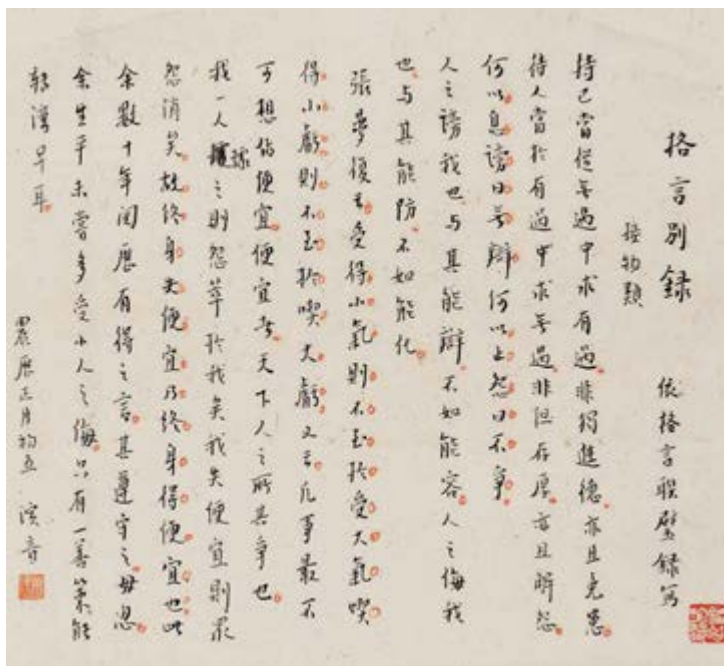 格言別録　依格言聯璧録寫
接物類
持己當從無過中求有過。非獨進德。亦且免患。
待人當於有過中求無過。非但存厚。亦且解怨。
何以息謗曰無辯。何以止怨曰不爭。
人之謗我也。與其能辯。不如能容。人之侮我
也。與其能防。不如能化。
張夢復云受得小氣則不至於受大氣喫
得小虧則不至於喫大虧。又云凡事最不
可想佔便宜。便宜者。天下人之所共爭也。
我一人據之則怨萃於我矣我失便宜則眾
怨消矣。故終身失便宜乃終身得便宜也此
余數十年閱歷有得之言。其遵守之毋忽
余生平未嘗多受小人之侮。只有一善策能
轉灣早耳。
農歷正月初五　演音